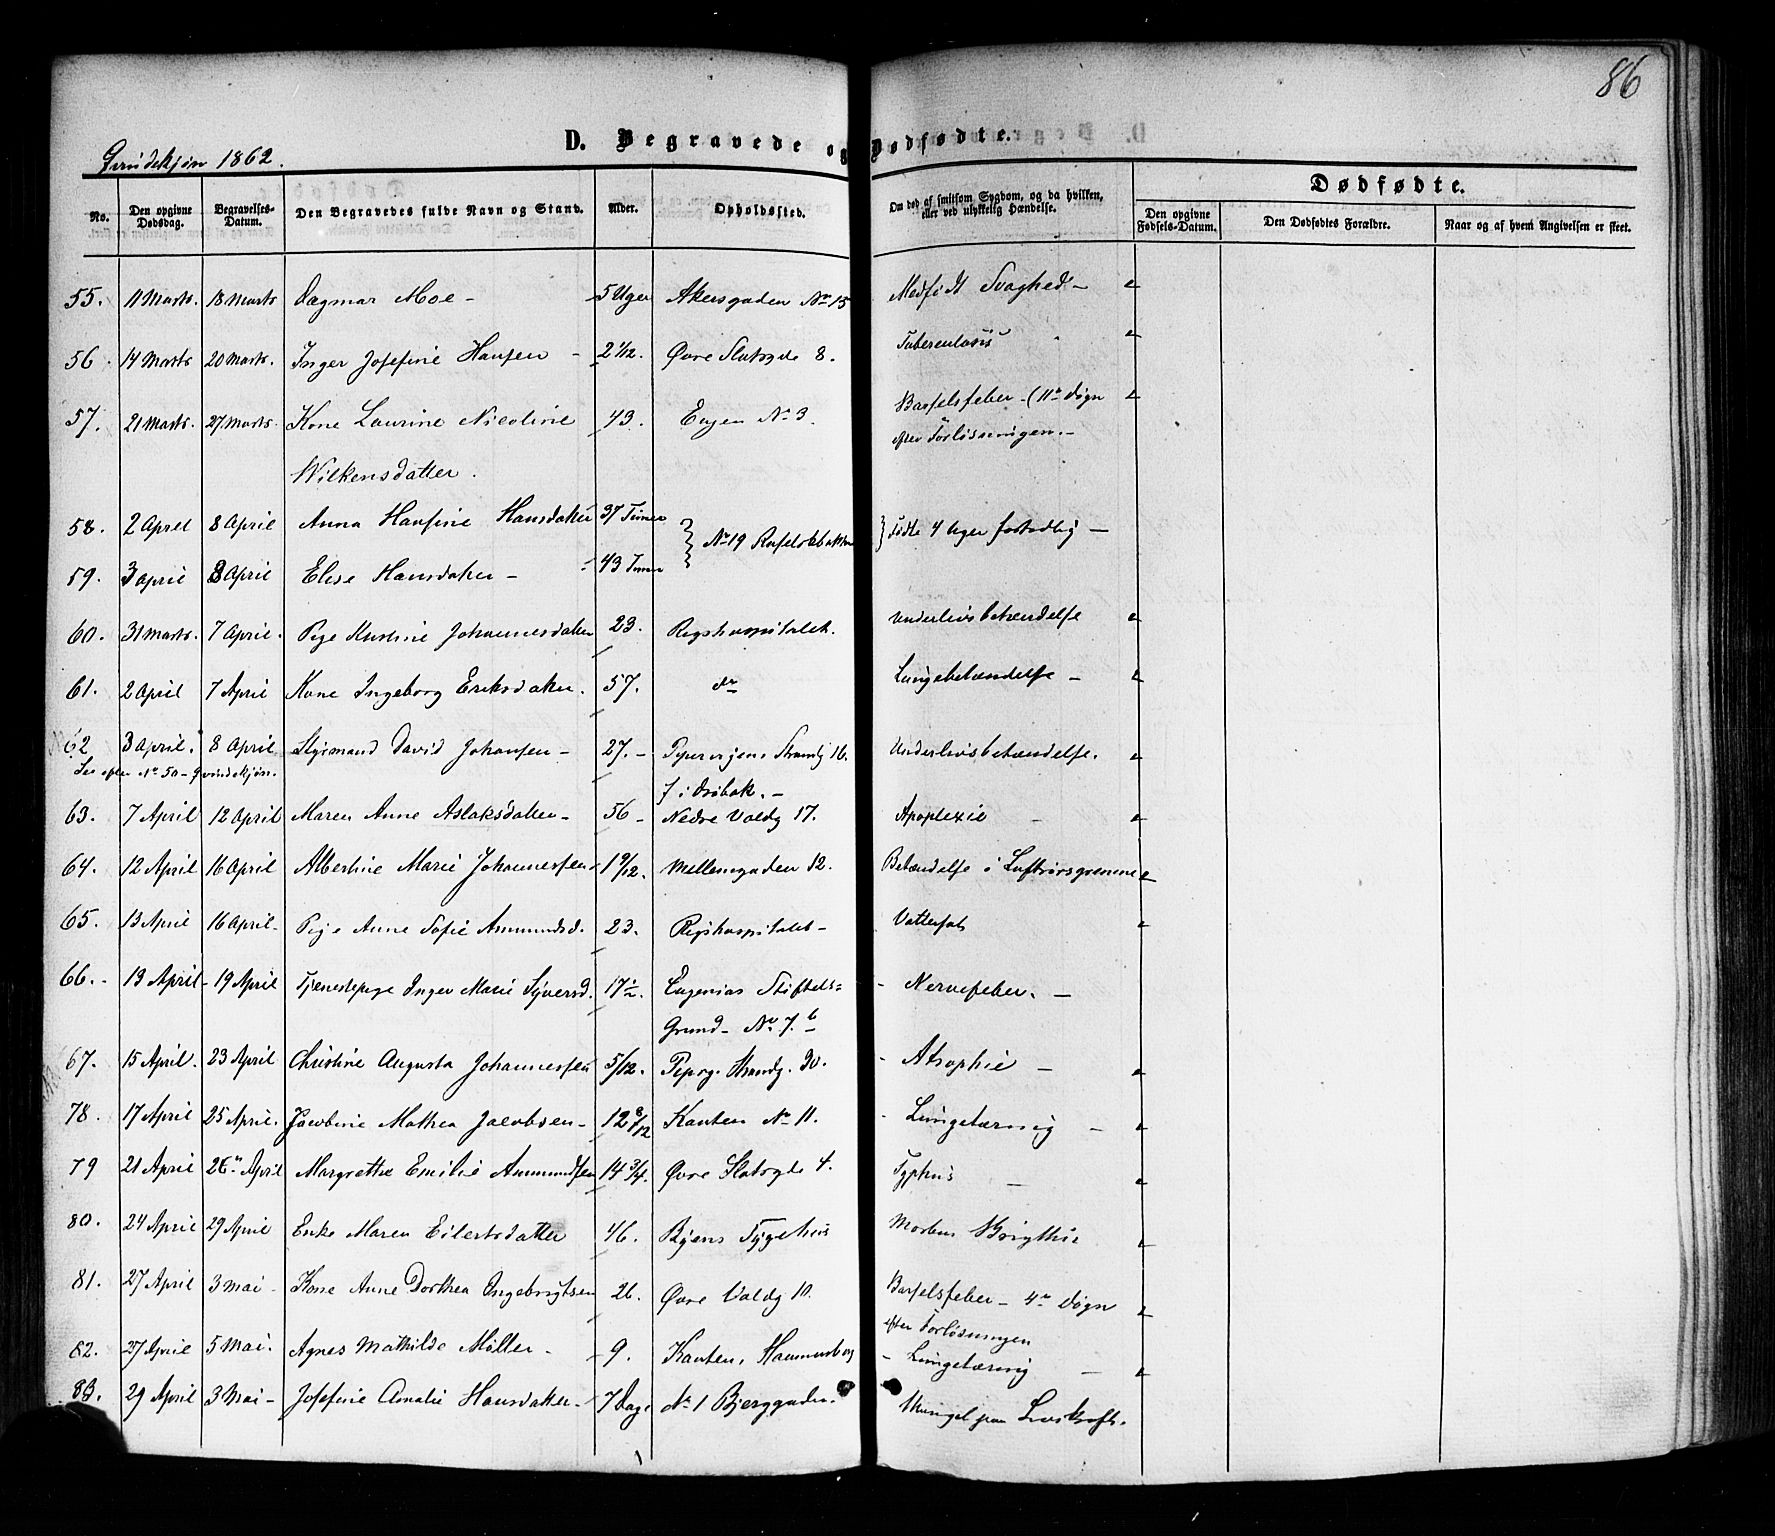 86
Qvindekjøn 1862.
D. Begravede og Dødfødte.
Dødfødte.
No. Den opgivne Dødsdag. Begravelses-Datum. Den Begravedes fulde Navn og Stand. Alder. Opholdssted. Om død af smitsom Sygdom, og da hvilken, eller ved ulykkelig Hændelse. Den opgivne Fødsels-Datum. Den Dødfødtes Forældre. Naar og af hvem Angivelsen er skeet.
55. 11 Marts. 18 Marts Dagmar Moe - 5 Uger Akersgaden No 15 Medfødt Svaghed -
56. 14 Marts 20 Marts. Inger Josefine Hansen - 2 1/12. Øvre Slotsgde 8. Tuberculosis
57. 21 Marts. 27 Marts. Kone Laurine Nicoline 43. Engen No 3. Barselsfeber - (11te Døgn
Wilkensdatter. efter Forløsningen.-
58. 2 April 8 April Anna Hansine Hansdatter 37 Timer } No 19 } Fødte 4 Uger fortidlig -
59. 3 April 8 April Elise Hansdatter - 43 Timer
60. 31 Marts. 7 April. Pige Kirstine Johannesdatter 23. Rigshospitalet. Underlivsbetændelse
61. 2 April 7 April Kone Ingeborg Eriksdatter. 57. do Lungebetændelse -
62 3 April. 8 April Sigismand David Johansen - 27. - Pipervigens Strandg 16. Underlivsbetændelse.
See efter No 50 - Qvindekjøn. f. i Drøbak. -
63. 7 April 12 April Maren Anne Aslaksdatter - 56 - Nedre Voldg 17. Apoplexie -
64. 12 April 16 April Albertine Marie Johannessen 1 9/12. Møllergaden 12. Betændelse i Luftrørsgrenene
65. 13 April 16 April - Pige Anne Sofie Ammundsd. 23. Rigshospitalet - Vattersot
66. - 13 April - 19 April Tjenestepige Inger Marie Syversd. 17 1/2. Eugenias Stiftels= - Nervefeber. -
Grund - No 7. b
67. 15 April. 23 April Christine Augusta Johannessen 5/12. Piperv. Strandg. 30. - Atrophie -
78. 17 April 25 April. Jacobine Mathea Jacobsen - 12 8/12 Kanten No 11. - Lungetæring -
79 21 April 26 April Margrethe Emilie Ammundsen 14 3/4. Øvre Slotsgde 4. Typhus -
80. 24 April 29 April Enke Maren Eilertsdatter 46. Byens Sygehus Morbus Brigthii
81. 27 April 3 Mai - Kone Anne Dorthea Ingebrigtsen 26. Øvre Voldg 10. Barselsfeber - 4de Døgn
efter Forløsningen
82. 27 April 5 Mai. Agnes Mathilde Møller - 9. Kanten, Hammersborg - Lungetæring -
83. 29 April 3 Mai - Josefine Amalie Hansdatter - 7 Dage No 1 Bjerggaden. Mangel paa Livskraft.